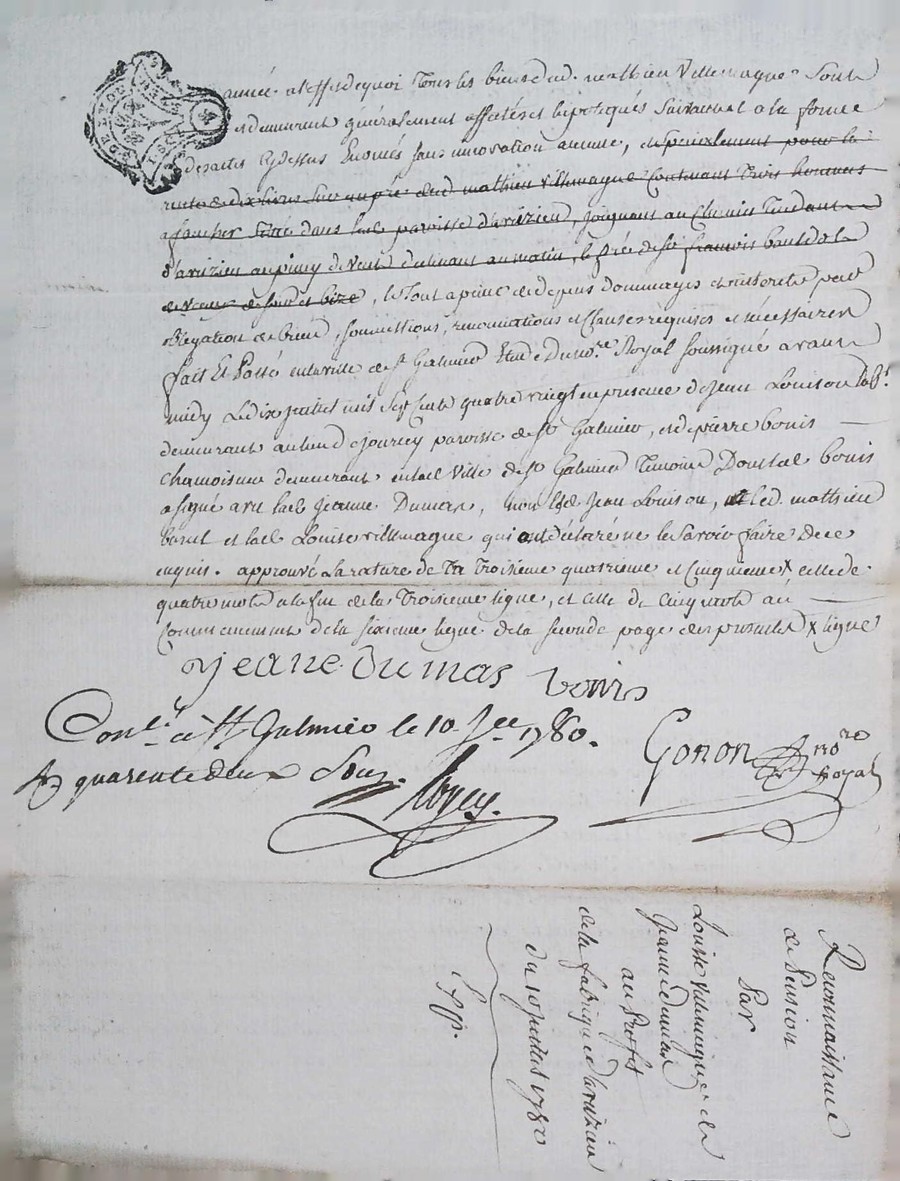 année, a l'effet de quoi Tous les biens dud. mathieu Villemagne Sont
et demeurent généralement affatés et hipotéqués Suivant et a la forme
des actes cy dessus Enoncés sans innovation aucune, et spécialement pour la
rente de dix livres sur un pré dud mathieu villemagne Contenant trois hommes
a faucher Situé dans lad. paroisse d'avuzieu, joignant au Chemin Tendant
d'avuzieu de vent declinant au matin, le pré de françois
de et bize, le Tout a peine de depens dommages et interets par
obligation de biens, soumissions, renonciations et Clauses requises et nécessaires
fait Et Passé en la ville de st. Galmier Etude du no.re Royal soussigné avant
midy Le dix juillet mil Sept Cent quatre vingt en presence de Jean Louison
demeurant au lieu de jourcey paroisse de st. Galmier, et de pierre bouis
chamoiseur demeurant en lad. Ville de st. Galmier Temoins Dont led. bouis
a signé avec lad. jeanne Dumas, non led. Jean Louison, led. mathieu
et lad. Louise villemagne qui ont déclaré ne le Savoir faire de ce
enquis. approuvé La rature de la troisieme quatrieme et Cinquieme x celle de
quatre mots a la fin de la troisieme ligne, et celle de Cinq mots au
Commencement de la sixieme ligne de la seconde page des presentes x ligne
jeane dumas bouis
Con.lé à St. Galmier le 10. 1780.
R quarente deux Sous.
Gonon no.re Royal
Reconnaissance
de Pension
Par
Louise villemagne et
jeanne dumas
au Profit
de la fabrique d'avuzieu
du 10 juillet 1780